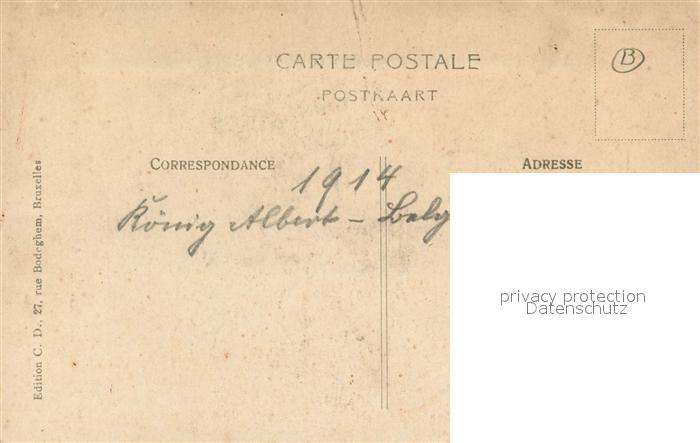 CARTE POSTALE
POSTKAART
B
CORRESPONDANCE
ADRESSE
1914
König Albert – Belg
privacy protection
Datenschutz
Edition C. D., 27, rue Bodeghem, Bruxelles